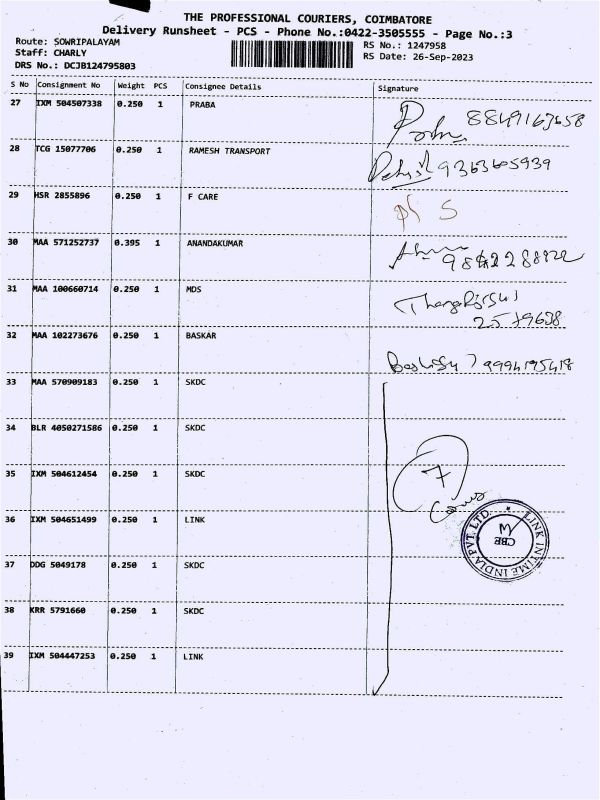 THE PROFESSIONAL COURIERS, COIMBATORE
Delivery Runsheet - PCS - Phone No.:0422-3505555 - Page No.:3
Route: SOWRIPALAYAM
Staff: CHARLY
DRS No.: DCJB124795803
RS No.: 1247958
RS Date: 26-Sep-2023
S No Consignment No Weight PCS Consignee Details Signature
27 IXM 504507338 0.250 1 PRABA
28 TCG 15077706 0.250 1 RAMESH TRANSPORT
9363605939
29 HSR 2855896 0.250 1 F CARE
30 MAA 571252737 0.395 1 ANANDAKUMAR
31 MAA 100660714 0.250 1 MDS
32 MAA 102273676 0.250 1 BASKAR
33 MAA 570909183 0.250 1 SKDC
34 BLR 4050271586 0.250 1 SKDC
7
35 IXM 504612454 0.250 1 SKDC
36 IXM 504651499 0.250 1 LINK
LINK INTIME INDIA PVT. LTD.
CBE
37 DDG 5049178 0.250 1 SKDC
38 KRR 5791660 0.250 1 SKDC
39 IXM 504447253 0.250 1 LINK